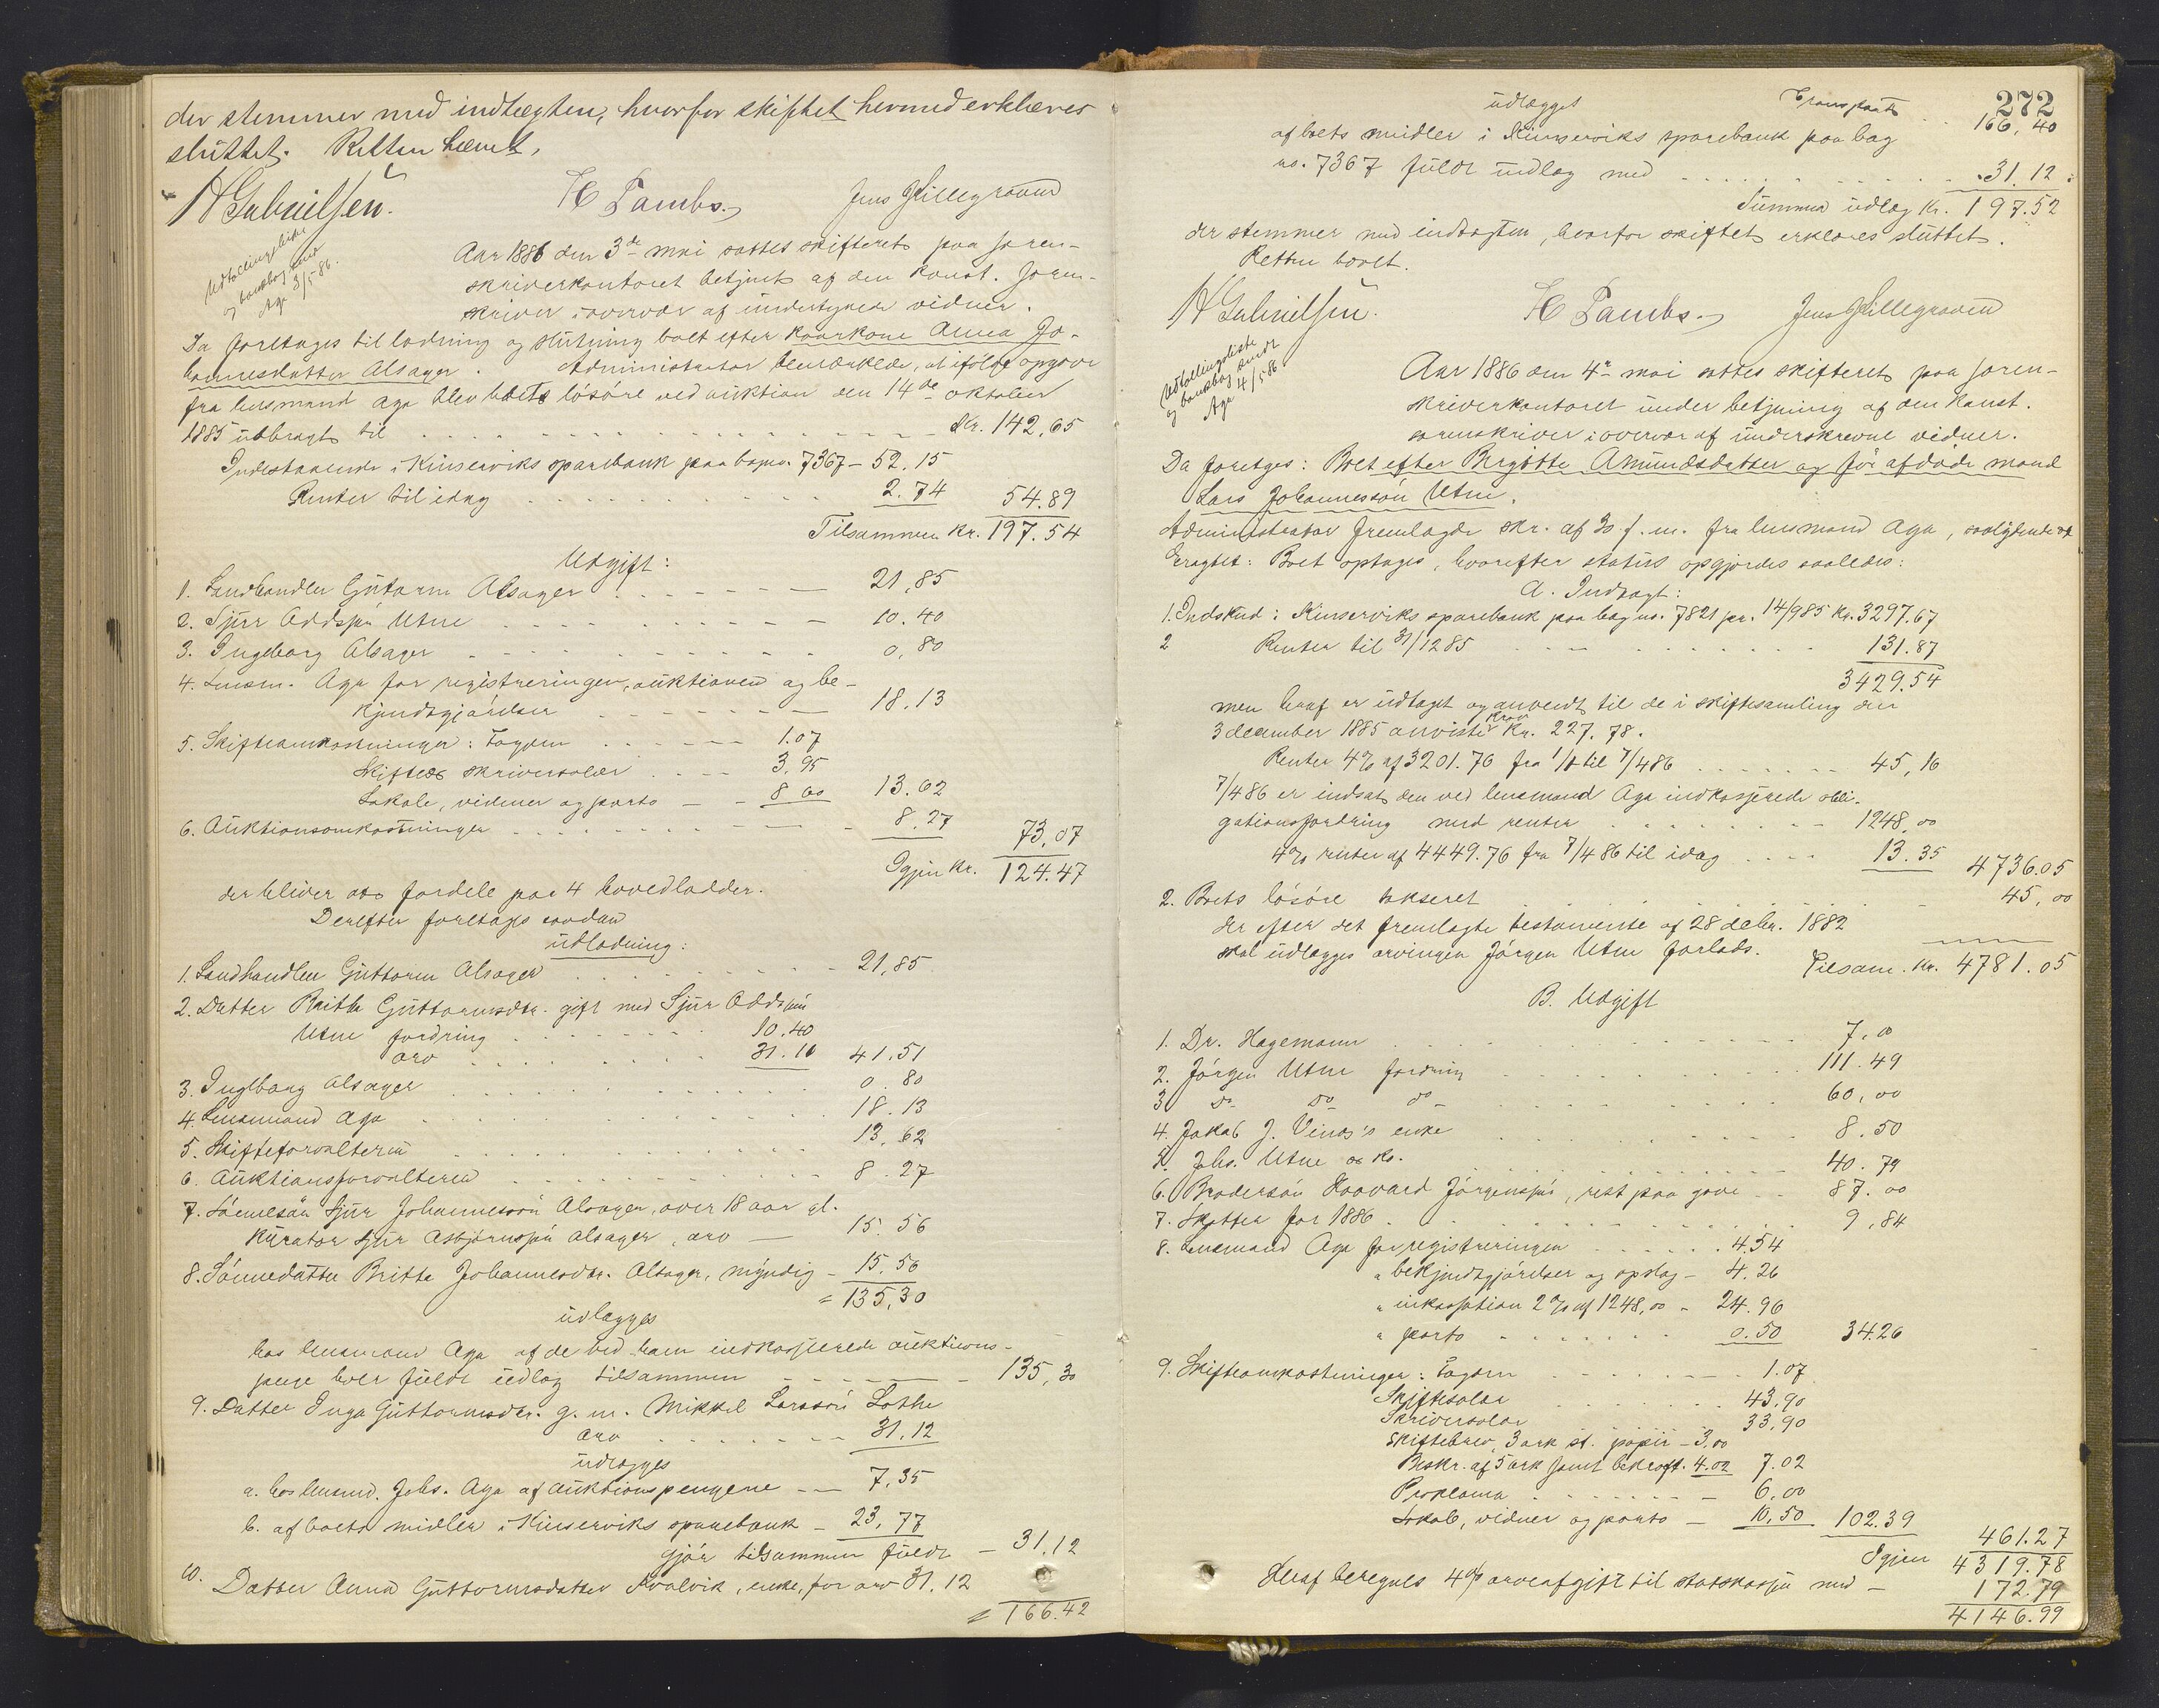 der stemmer med indtægten, hvorfor skiftet hermed erklæres
sluttet. Retten hævet.
H Gabrielsen. H Lambs. Jens Hillegraven
Udtællingsliste
og bankbog sendt
Aga 3/5 86.
Aar 1886 den 3de mai sattes skifteret paa soren-
skriverkontoret betjent af den konst. soren-
skriver i overvær af undertegnede vidner.
Da foretages til lodning og slutning boet efter kaarkone Anna Jo-
hannesdatter Alsager. Administrator bemærkede, at ifølge opgave
fra lensmand Aga blev boets løsøre ved auktion den 14de oktober
1885 udbragt til Kr. 142.65
Indestaaende i Kinserviks sparebank paa bog no. 7367 - 52.15
Renter til idag 2.74 54.89
Tilsammen Kr. 197.54
Udgift:
1. Landhandler Guttorm Alsager 21,85
2. Sjur Oddsøn Utne 10.40
3. Ingeborg Alsager 0,80
4. Lensm. Aga for registreringen, auktionen og be-
kjendtgjørelser 18.13
5. Skifteomkostninger: Fogden 1.07
Skiftets skriversalær 3.95
Lokale, vidner og porto - 8 00 13.02
6. Auktionsomkostninger 8.27 73,07
Igjen Kr. 124.47
der bliver at fordele paa 4 hovedlodder.
Derefter foretages saadan
udlodning:
1. Landhandler Guttorm Alsager 21,85
2. Datter Britha Guttormsdtr. gift med Sjur Oddsøn
Utne fordring 10.40
arv 31.10 41.51
3. Ingeborg Alsager 0.80
4. Lensmand Aga 18.13
5. Skifteforvalteren 13.62
6. Auktionsforvalteren 8.27
7. Sønnesøn Sjur Johannessøn Alsager, over 18 aar gl.
Kurator Sjur Asbjørnsøn Alsager, arv — 15.56
8. Sønnedatter Britta Johannesdtr. Alsager, myndig - 15.56
= 135,30
udlægges
hos lensmand Aga af de ved ham indkasserede auktions-
penge hver fuldt udlæg tilsammen 135,30
9. Datter Inga Guttormsdtr. g. m. Mikkel Larssøn Lothe
arv 31.12
udlægges
a. hos lensmd. Johs. Aga af auktionspengene — 7.35
b. af boets midler i Kinserviks sparebank - 23,77
gjør tilsammen fuldt - 31.12
10. Datter Anna Guttormsdatter Kvalvik, enke, for arv 31.12
= 166.42
272
udlægges Transport 166,40
af boets midler i Kinserviks sparebank paa bog
no. 7367 fuldt udlæg med 31.12
Summa udlæg Kr. 197.52
der stemmer med indtægten, hvorfor skiftet erklæres sluttet.
Retten hævet.
H Gabrielsen. H Lambs. Jens Hillegraven
Udtællingsliste
og bankbog sendt
Aga 4/5 86
Aar 1886 den 4de mai sattes skifteret paa soren-
skriverkontoret under betjening af den konst.
sorenskriver i overvær af underskrevne vidner.
Da foretges: Boet efter Brgitte Amundsdatter og før afdøde mand
Lars Johannessøn Utne.
Administrator fremlagde skr. af 30 f. m. fra lensmand Aga, saalydende
Eragtet: Boet optages, hvorefter status opgjordes saaledes:
A. Indtægt:
1. Indskud i Kinserviks sparebank paa bog no. 7821 pr. 14/9 85 Kr. 3297.67
2 Renter til 31/12 85 131.87
3429.54
men heraf er udtaget og anvendt til de i skiftesamling den
3 december 1885 anviste krav Kr. 227.78.
Renter 4% af 3201.76 fra 1/1 til 7/4 86 45,16
7/4 86 er indsat den ved lensmand Aga indkasserede obli-
gationsfordring med renter 1248.00
4% renter af 4449.76 fra 7/4 86 til idag 13.35 4736.05
2. Boets løsøre takseret 45,00
der efter det fremlagte testamente af 28 debr. 1882
skal udlægges arvingen Jørgen Utne forlods.
Tilsam. Kr. 4781.05
B. Udgift
1. Dr. Hagemann 7.00
2. Jørgen Utne fordring 111.49
3 do do do 60,00
4. Jakob J. Vinæs's enke 8.50
5. Johs. Utne & Ko. 40.79
6. Brodersøn Haavard Jørgensøn, rest paa gave 87.00
7. Skatter for 1886 9,84
8. Lensmand Aga for registreringen 4.54
" bekjendtgjørelser og opslag - 4.26
" inkassation 2% af 1248,00 - 24.96
" porto 0.50 34.26
9. Skifteomkostninger: Fogden 1.07
Skiftesalær 43,90
Skriversalær 33,90
Skiftebrev, 3 ark st. papir - 3,00
Beskr. af 5 ark samt bekræft. 4.02 7.02
Proklama 6,00
Lokale, vidner og porto - 10,50 102.39 461.27
Igjen 4319.78
Heraf beregnes 4% arveafgift til statskassen med - 172.79
4146.99